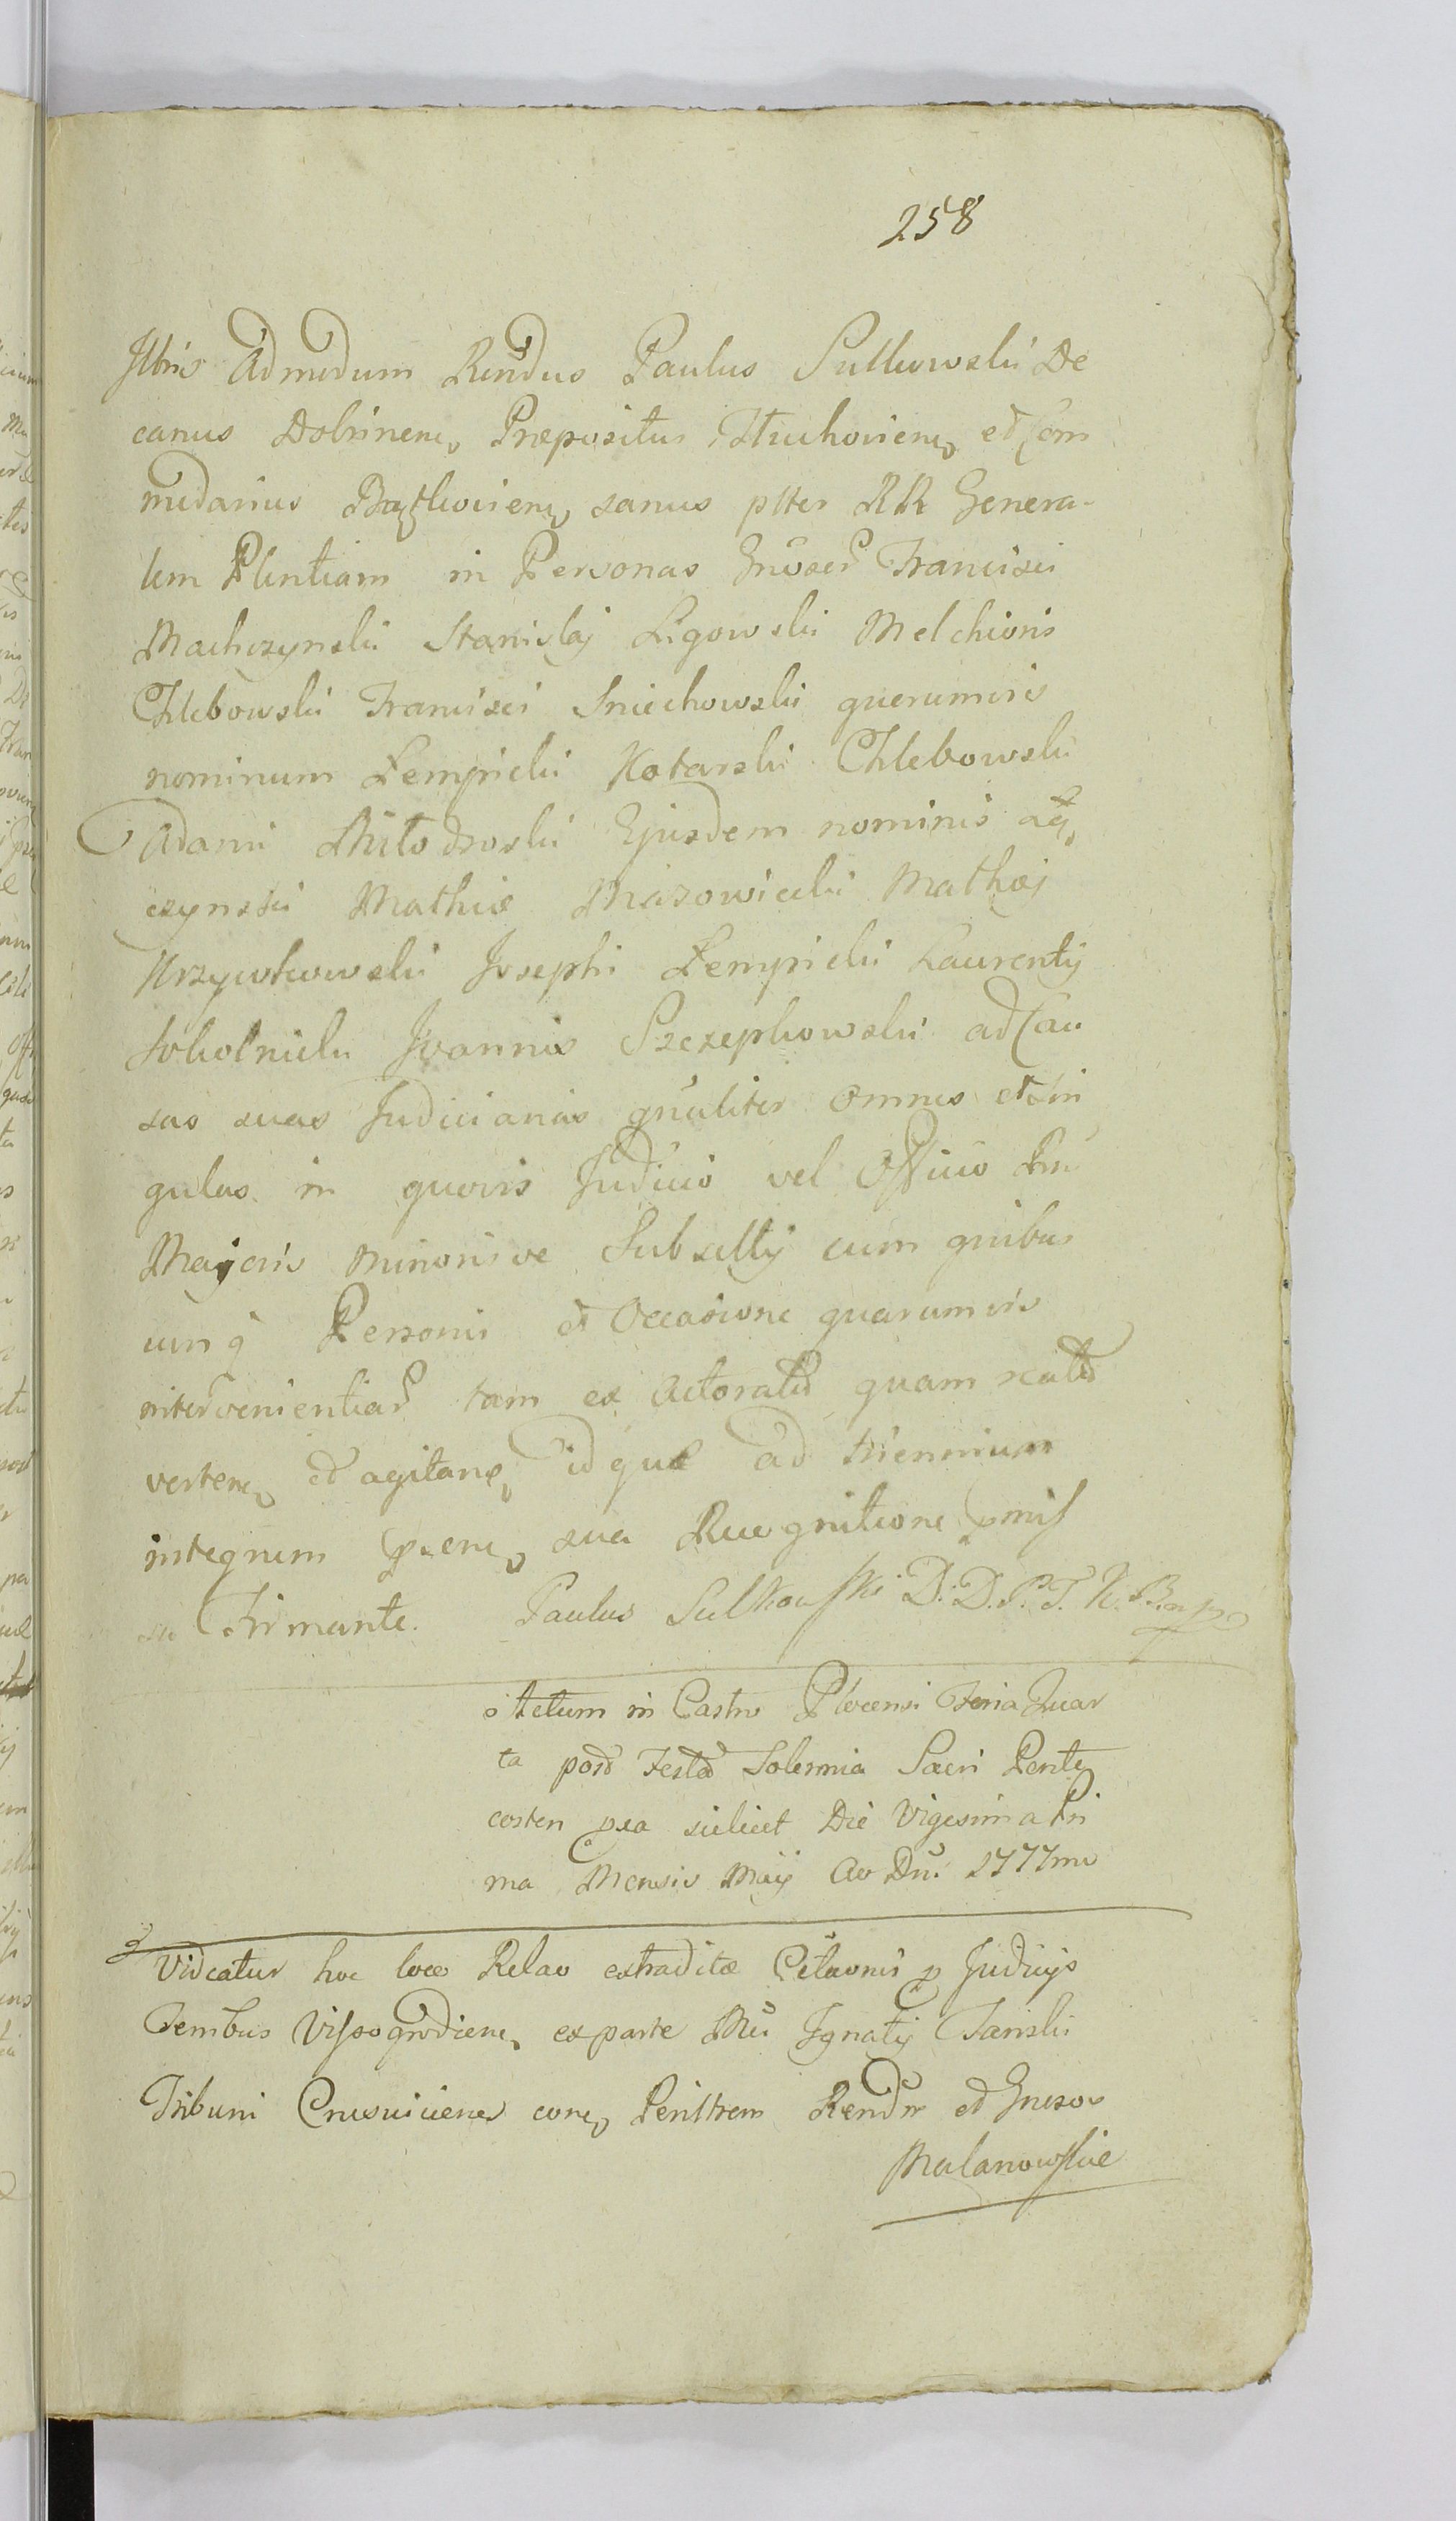 258
Illris Admodum Rndus Paulus Sulkowski De
canus Dobrinens Præpositus Tłuchoviens et Com
medarius sanus plter RR Genera-
lem Plentiam in Personas Gnosor Francisci
Machczynski Stanislaj Ligowski Melchioris
Chlebowski Francisci Sniechowski quorumvis
nominum Łempicki Kotarski Chlebowski
Adami Miłodroski Ejusdem nominis
czynski Mathiæ Mazowiecki Mathæj
Krzywkowski Josephi Łempicki Laurentij
Sokolnicki Joannis Szczepkowski ad Cau
sas suas Judiciarias gnaliter omnes et Sin
gulas in quovis Judicio vel Officio
Majoris Minorisve Subsellij cum quibus
cunq Personis et Occasione quarumvis
intervenientiar tam ex Actoratu quam reatu
verten et agitan idque ad triennium
integrum pnem sua Recognitione pmis
sa Firmante. Paulus Sulkowski D. D. P. T. K. B. mp
Actum in Castro Plocensi Feria Quar
ta post Festa Solemnia Sacri Pente
costen pxa scilicet Die Vigesima Pri
ma Mensis Maij Ao Dni 1777mo
Videatur hoc loco Relao extraditæ Citaonis p Judicijs
Tembus Vissogrodiens ex parte Mci Ignatij Tanski
Tribuni Crusviciens cone Perilltrem Rendm et Gnosos
Malanowskie